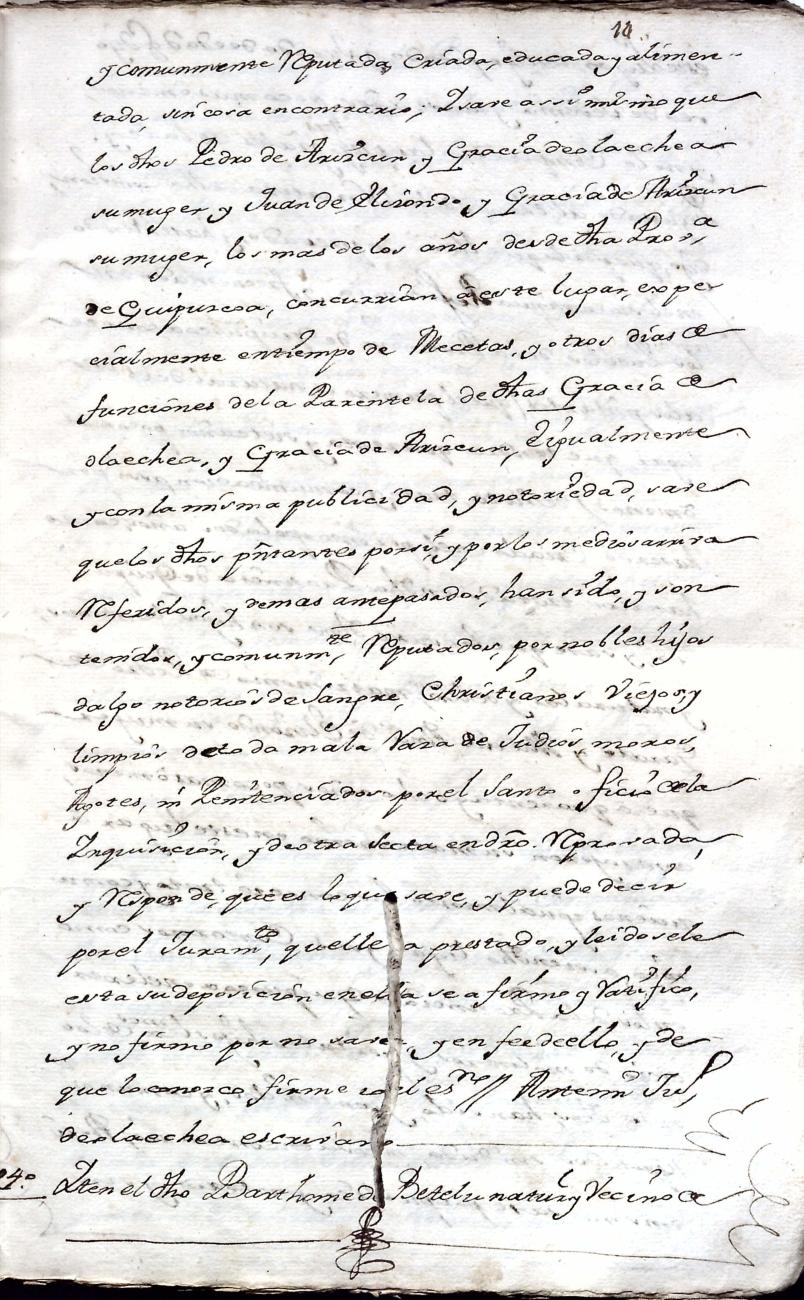 14.
y comunmente Reputada, Criada, educada y alimen-
tada, sin cosa en contrario; Isave assi mismo que
los dhos Pedro de Arizcun y Gracia de olaechea
su muger, y Juan de Elisondo, y Gracia de Arizcun
su muger, los mas de los años desde dha Prova
de Guipuzcoa, concurrian à este lugar, expe
cialmente en tiempo de Mecetas, y otros dias de
funciones de la Parentela de dhas Gracia de
olaechea, y Gracia de Arizcun, E igualmente
y con la misma publicidad, y notoriedad, save
que los dhos pñtantes por si, y por los medios arriva
Referidos, y demas antepasados, han sido, y son
tenidos, y comunmte, Reputados, por nobles hijos
dalgo notorios de Sangre, Christianos Viejos, y
limpios de toda mala Raza de Judios, moros,
Agotes, ni Penitenciados por el Santo oficio de la
Inquisicion, y de otra Secta en dro. Reprovada,
y Responde, que es lo que save, y puede decir
por el Juramto, que lleva prestado, y leidosele
esta su deposicion en ella se afirmo y Ratifico,
y no firmo por no saver, y en fee de ello, y de
que lo conozco firme yo el esno// Antemi Jul
de olaechea escrivano
14.º Iten el dho Barthome de Betelu natural y Vecino de